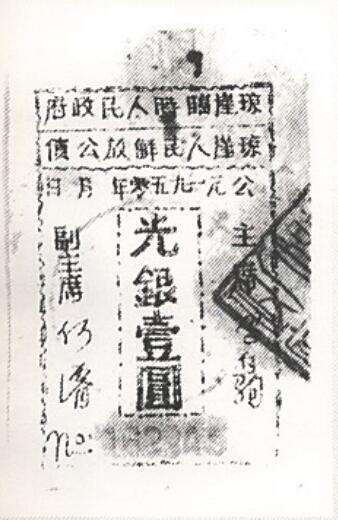 琼崖臨時人民政府
琼崖人民解放公債
公元一九五零年 月 日
主席
光銀壹圓
副主席 何